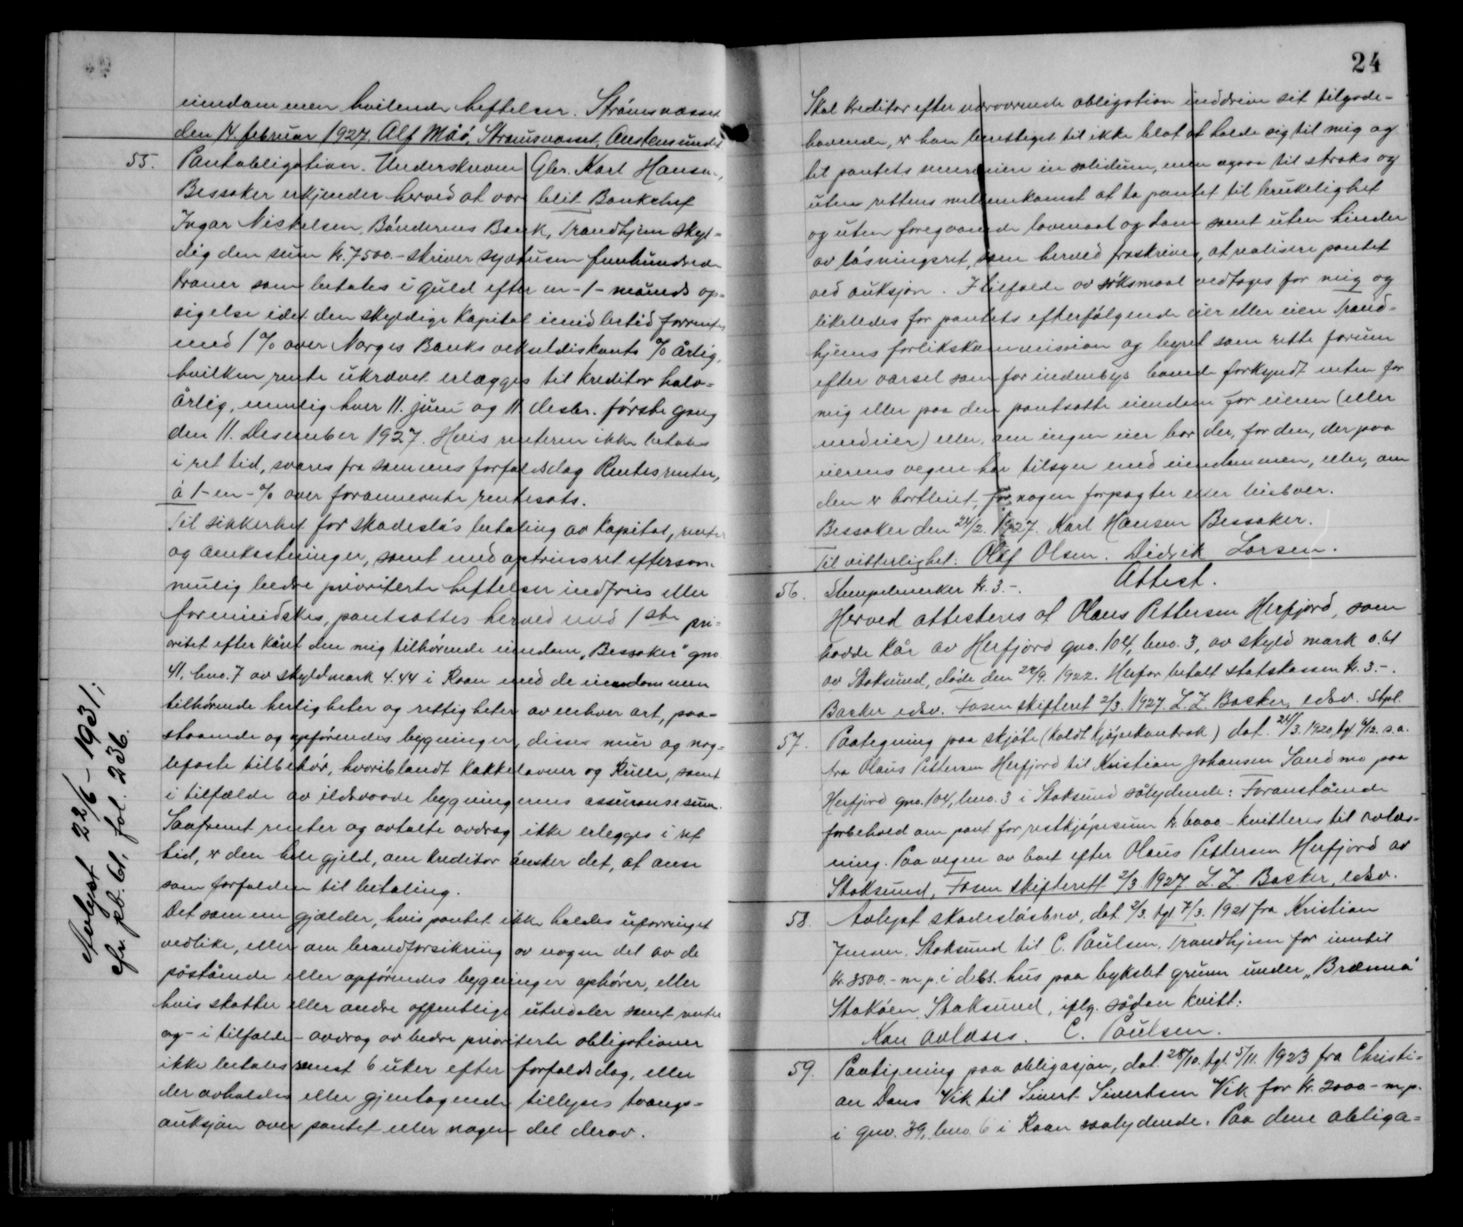 eiendommen hvilende heftelser. Strømsvasset
den 14. februar 1927. Alf Måø, Strømsvasset, Austensundet
55. Pantobligation. Underskreven Gbr. Karl Hansen,
Bessaker erkjender herved at være blit Bankchef
Ingar Nickelsen, Bøndernes Bank, Trondhjem skyl-
dig den sum kr. 7500.- skriver sydtusen femhundrede
kroner som betales i guld efter en -1- måneds op-
sigelse idet den skyldige kapital imidlertid forrentes
med 1 % over Norges Banks vekseldiskonto % årlig,
hvilken rente ukrævet erlægges til kreditor halv-
årlig, nemlig hver 11. juni og 11. desbr. første gang
den 11. Desember 1927. Hvis renterne ikke betales
i ret tid, svares fra sammes forfaldsdag Rentesrenter,
á 1-en-% over forannevnte rentesats.
Til sikkerhet for skadesløs betaling av kapital, renter
og omkostninger, samt med optrinsret eftersom
mulig bedre prioriterte heftelser indfries eller
formindskes, pantsættes herved med 1ste pri-
oritet efter kåret den mig tilhørende eiendom "Bessaker" gno.
41. bno. 7 av skyldmark 4.44 i Roan med de eiendommen
tilhørende herligheter og rettigheter av enhver art, paa-
staaende og opførendes bygninger, disses mur og nag-
lefaste tilbehør, hvoriblandt kakkelovner og Ruller, samt
i tilfælde av ildsvaade bygningernes assuransesum.
Saafremt renter og avtalte avdrag ikke erlegges i ret
tid, er den hele gjeld, om kreditor ønsker det, at anse
som forfalden til betaling.
Det samme gjælder, hvis pantet ikke holdes uforringet
vedlike, eller om brandforsikring av nogen del av de
påstående eller opførendes bygninger ophører, eller
hvis skatter eller andre offentlige utredsler samt renter
og - i tilfælde - avdrag av bedre prioriterte obligationer
ikke betales senest 6 uker efter forfaldsdag, eller
der avholdes eller gjentagende tillyses tvangs-
auksjon over pantet eller nogen del derav.
Avlyst 22/6 - 1931;
cfr. pb. 61, fol. 236.
24
Skal kreditor efter nærværende obligation inddrive sit tilgode-
havende, er han berettiget til ikke blot at holde sig til mig og
til pantets meden in solidum, men ogsaa til straks og
uten rettens mellemkomst at ta pantet til brukelighet
og uten foregaaende lovmaal og dom samt uten hinder
av løsningsret, som herved fraskrives, at realisere pantet
ved auksjon. I tilfælde av søksmaal vedtages for mig og
likeledes for pantets efterfølgende eier eller eiere Trond-
hjems forlikskommission og byret som rette forum
efter varsel som for indenbys boende forkyndt enten for
mig eller paa den pantsatte eiendom for eieren (eller
medeier) eller, om ingen eier bor der, for den, der paa
eierens vegne har tilsyn med eiendommen, eller, om
den er bortleiet, for nogen forpagter eller leieboer.
Bessaker den 24/2. 1927. Karl Hansen Bessaker.
Til vitterlighet: Olaf Olsen. Didrik Larsen.
56. Stempelmerker kr. 3.-. Attest.
Herved attesteres at Olaus Pettersen Herfjord, som
hadde kår av Herfjord gno. 104, bno. 3, av skyld mark 0.61
av Stoksund, døde den 24/9. 1922. Herfor betalt statskassen kr. 3.-.
Backer edsv. Fosen skifteret 2/3. 1927. L. Z. Backer, edsv. Stpl.
57. Paategning paa skjøte (kaldt kjøpekontrakt) dat. 24/3. 1920, tgl. 4/12. s.a.
fra Olaus Pettersen Herfjord til Kristian Johansen Sandmo paa
Herfjord gno. 104, bno. 3 i Stoksund sålydende: Foranstående
forbehold om pant for restkjøpesum kr. 6000 - kvitteres til avlæs-
ning. Paa vegne av boet efter Olaus Pettersen Herfjord av
Stoksund, Fosen skifterett 2/3 1927 L. Z. Backer, edsv.
58. Avlyst skadesløsbrev, dat. 2/3. tgl. 7/3. 1921 fra Kristian
Jensen, Stoksund til C. Paulsen, Trondhjem for inntil
kr. 3500.- m. p. i debs. hus paa bykslet grunn under "Bremnes"
Stokøen, Stoksund, iflg. sådan kvitt:
Kan avlæses. C. Paulsen.
59. Paategning paa obligasjon, dat. 28/10. tgl. 5/11. 1923 fra Christi-
an Dons Vik til Sivert Sivertsen Vik for kr. 2000 - m. p.
i gno. 39, bno. 6 i Roan saalydende: Paa dene obliga-